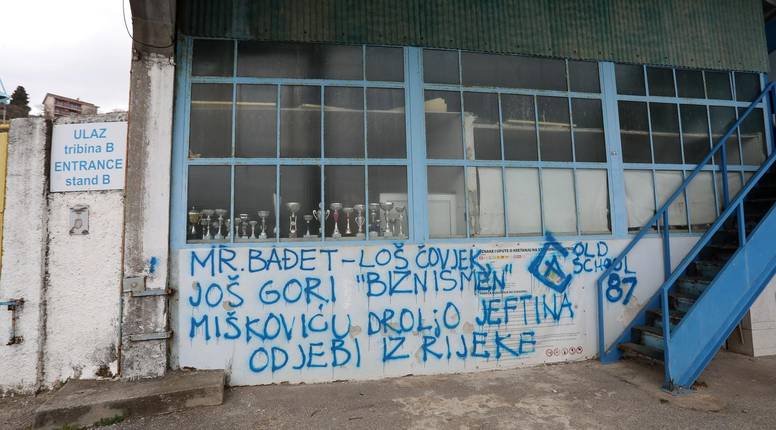 ULAZ
tribina B
ENTRANCE
stand B
MR. BAĐET - LOŠ ČOVJEK,
JOŠ GORI "BIZNISMEN"
MIŠKOVIĆU DROLJO JEFTINA
ODJEBI IZ RIJEKE
OLD
SCHOOL
87